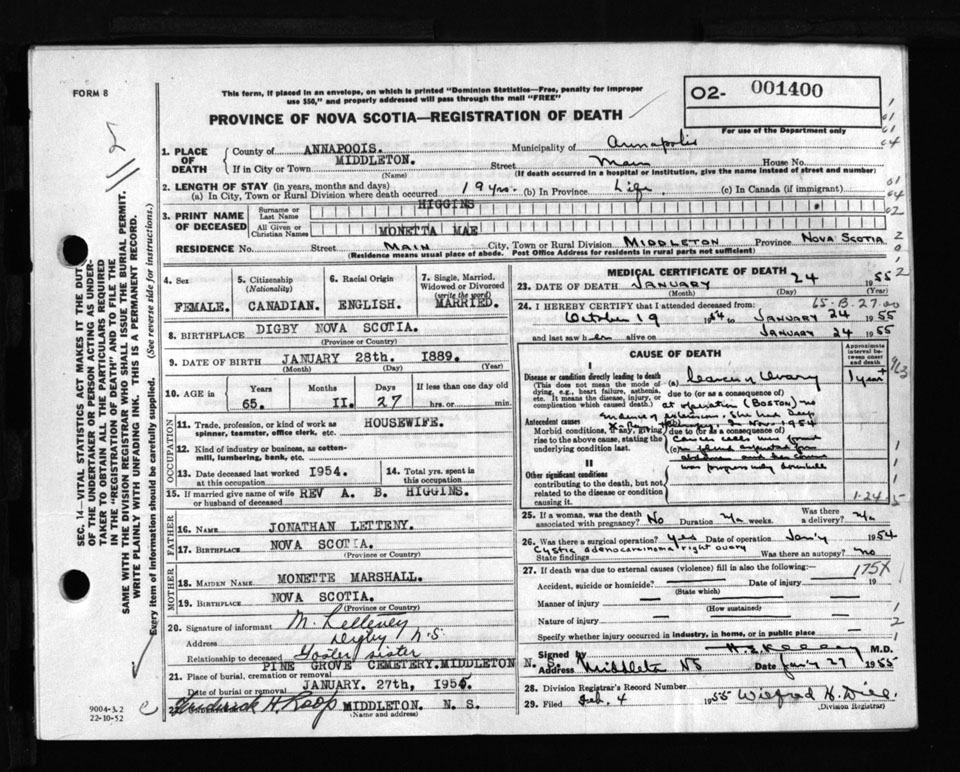 FORM 8
This form, if placed in an envelope, on which is printed "Dominion Statistics—Free, penalty for improper
use $50," and properly addressed will pass through the mail "FREE"
O2- 001400
For use of the Department only
PROVINCE OF NOVA SCOTIA—REGISTRATION OF DEATH
1. PLACE OF DEATH
County of ANNAPOOIS. Municipality of Annapolis
If in City or Town MIDDLETON. Street Main House No.
(Name) (If death occurred in a hospital or institution, give the name instead of street and number)
2. LENGTH OF STAY (in years, months and days)
(a) In City, Town or Rural Division where death occurred 19 yrs. (b) In Province Life. (c) In Canada (if immigrant)
3. PRINT NAME OF DECEASED
Surname or Last Name HIGGINS
All Given or Christian Names MONETTA MAE
RESIDENCE No. Street MAIN City, Town or Rural Division MIDDLETON Province NOVA SCOTIA
(Residence means usual place of abode. Post Office Address for residents in rural parts not sufficient)
4. Sex
FEMALE.
5. Citizenship
(Nationality)
CANADIAN.
6. Racial Origin
ENGLISH.
7. Single, Married,
Widowed or Divorced
(write the word)
MARRIED.
8. BIRTHPLACE DIGBY NOVA SCOTIA.
(Province or Country)
9. DATE OF BIRTH JANUARY 28th. 1889.
(Month) (Day) (Year)
10. AGE in
Years Months Days If less than one day
65. II. 27 hrs. or min.
OCCUPATION
11. Trade, profession, or kind of work as HOUSEWIFE.
spinner, teamster, office clerk, etc.
12. Kind of industry or business, as cotton-
mill, lumbering, bank, etc.
13. Date deceased last worked 1954.
at this occupation
14. Total yrs. spent in
this occupation
15. If married give name of wife REV A. B. HIGGINS.
or husband of deceased
FATHER
16. NAME JONATHAN LETTENY.
17. BIRTHPLACE NOVA SCOTIA.
(Province or Country)
MOTHER
18. MAIDEN NAME MONETTE MARSHALL.
19. BIRTHPLACE NOVA SCOTIA.
(Province or Country)
20. Signature of informant M. Letteney
Address Digby N.S.
Relationship to deceased Foster sister
PINE GROVE CEMETERY.MIDDLETON N. S.
21. Place of burial, cremation or removal
Date of burial or removal JANUARY. 27th, 1955.
Frederick H. Roop MIDDLETON. N. S.
(Name and address)
MEDICAL CERTIFICATE OF DEATH
23. DATE OF DEATH JANUARY 24 1955
(Month) (Day)
65-B-27.00
24. I HEREBY CERTIFY that I attended deceased from:
October 19 1954 to JANUARY 24 1955
and last saw her alive on JANUARY 24 1955
CAUSE OF DEATH
Approximate interval between onset and death
I
Disease or condition directly leading to death (a) Cancer of Ovary 1 year +
(This does not mean the mode of
dying, e.g., heart failure, asthenia,
etc. It means the disease, injury, or
complication which caused death.)
due to (or as a consequence of)
at operation (BOSTON) no
Antecedent causes
Morbid conditions, if any, giving
rise to the above cause, stating the
underlying condition last.
due to (or as a consequence of)
Nov 1954
Cancer cells were found
and her course
was progressively downhill
II
Other significant conditions
contributing to the death, but not
related to the disease or condition
causing it.
1-24
25. If a woman, was the death
associated with pregnancy? No Duration n/a weeks. Was there a delivery? n/a
26. Was there a surgical operation? yes Date of operation Jan'y 1954
Cystic adenocarcinoma right ovary
State findings Was there an autopsy? no
27. If death was due to external causes (violence) fill in also the following:—
175X
Accident, suicide or homicide? Date of injury 19
(State which)
Manner of injury
(How sustained)
Nature of injury
Specify whether injury occurred in industry, in home, or in public place
Signed by M.D.
Address Middleton NS Date Jan'y 27 1955
28. Division Registrar's Record Number
29. Filed Feb. 4 1955
(Division Registrar)
SEC. 14—VITAL STATISTICS ACT MAKES IT THE DUTY
OF THE UNDERTAKER OR PERSON ACTING AS UNDER-
TAKER TO OBTAIN ALL THE PARTICULARS REQUIRED
IN THE "REGISTRATION OF DEATH" AND TO FILE THE
SAME WITH THE DIVISION REGISTRAR WHO SHALL ISSUE THE BURIAL PERMIT.
WRITE PLAINLY WITH UNFADING INK. THIS IS A PERMANENT RECORD.
Every item of information should be carefully supplied. (See reverse side for instructions.)
9004-3.2
22-10-52